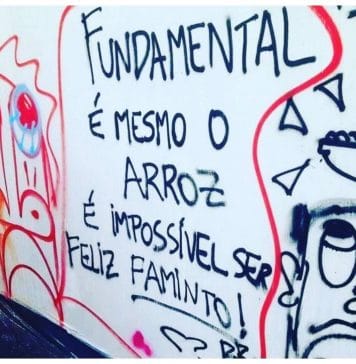 FUNDAMENTAL
É MESMO O
ARROZ
É IMPOSSÍVEL SER
FELIZ FAMINTO!